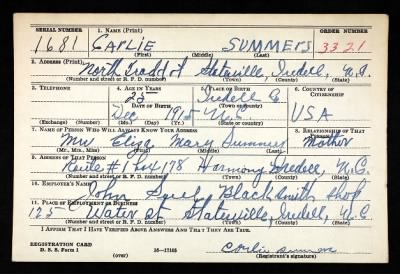 SERIAL NUMBER 1. NAME (Print) ORDER NUMBER
1681 CARLIE SUMMERS 3321
(First) (Middle) (Last)
2. ADDRESS (Print)
North Statesville, Iredell, N.C.
(Number and street or R. F. D. number) (Town) (County) (State)
3. TELEPHONE 4. AGE IN YEARS 5. PLACE OF BIRTH 6. COUNTRY OF CITIZENSHIP
25 Iredell Co.
DATE OF BIRTH (Town or county)
Dec 1915 N.C. USA
(Exchange) (Number) (Mo.) (Day) (Yr.) (State or country)
7. NAME OF PERSON WHO WILL ALWAYS KNOW YOUR ADDRESS 8. RELATIONSHIP OF THAT PERSON
Mrs Eliza Mary Summers Mother
(Mr., Mrs., Miss) (First) (Middle) (Last)
9. ADDRESS OF THAT PERSON
Route #1 Box 178 Harmony Iredell, N.C.
(Number and street or R. F. D. number) (Town) (County) (State)
10. EMPLOYER'S NAME
John Blacksmith Shop
11. PLACE OF EMPLOYMENT OR BUSINESS
125 Water St Statesville, Iredell, N.C.
(Number and street or R. F. D. number) (Town) (County) (State)
I AFFIRM THAT I HAVE VERIFIED ABOVE ANSWERS AND THAT THEY ARE TRUE.
REGISTRATION CARD
D. S. S. Form 1 16—17105 Carlie Summers
(over) (Registrant's signature)